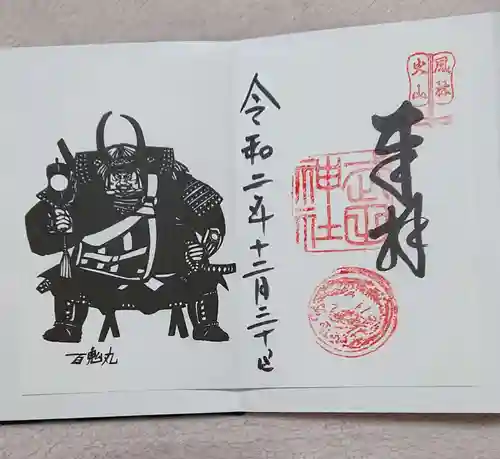 風林
火山
奉拝
武田
神社
令和二年十二月二十日
百鬼丸